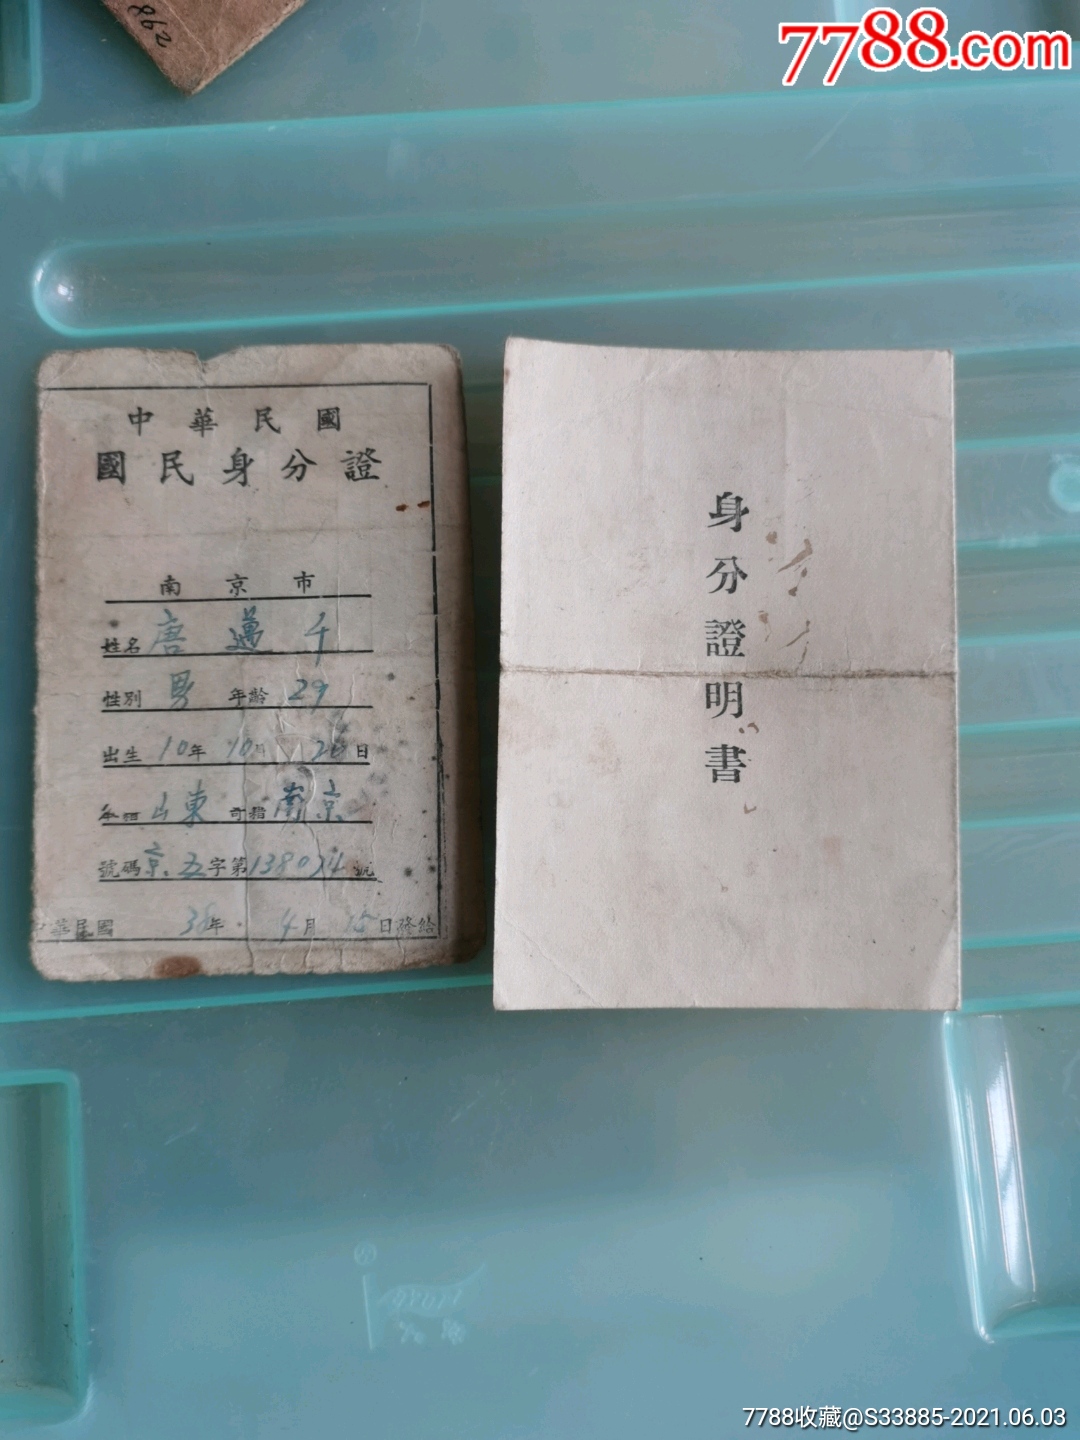 862
7788.com
中華民國
國民身分證
南京市
姓名 唐邁千
性別 男 年齡 29
出生 10年10月26日
本籍 山東 寄籍 南京
號碼 京五字第138074號
中華民國 38年4月15日發給
身分證明書
7788收藏@S33885-2021.06.03